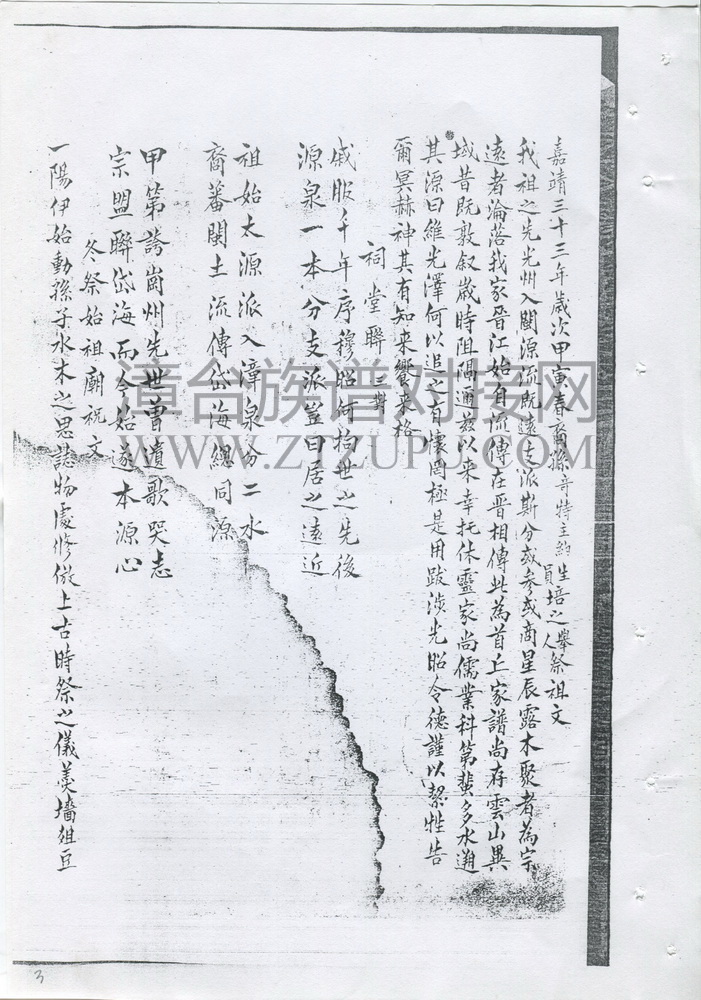 嘉靖三十三年歲次甲寅春裔孫奇特主約生員培之舉人祭祖文
我祖之先光州入閩源流既遠支派斯分或參或商星辰露木聚者為宗
遠者淪落我家晉江始自流傳在晉相傳此為首丘家譜尚存雲山異
域昔既敦叙歲時阻隔邇茲以來幸托休靈家尚儒業科第蜚多水遡
其源曰維先澤何以追之有懷罔極是用跋涉光昭令德謹以絜牲告
爾冥赫神其有知來饗來格
祠堂聯 三對
戚服千年序穆昭何拘世之先後
源泉一本分支派豈曰居之遠近
祖始太源派入漳泉分二水
裔蕃閩土流傳岱海總同源
甲第誇崗州先世曾瀆歌哭志
宗盟聯岱海而今始遂本源心
冬祭始祖廟祝文
一陽伊始動孫子水木之思誌物處修倣上古時祭之儀羹墻俎豆
漳台族谱对接网
WWW.ZTZUPU.COM
3